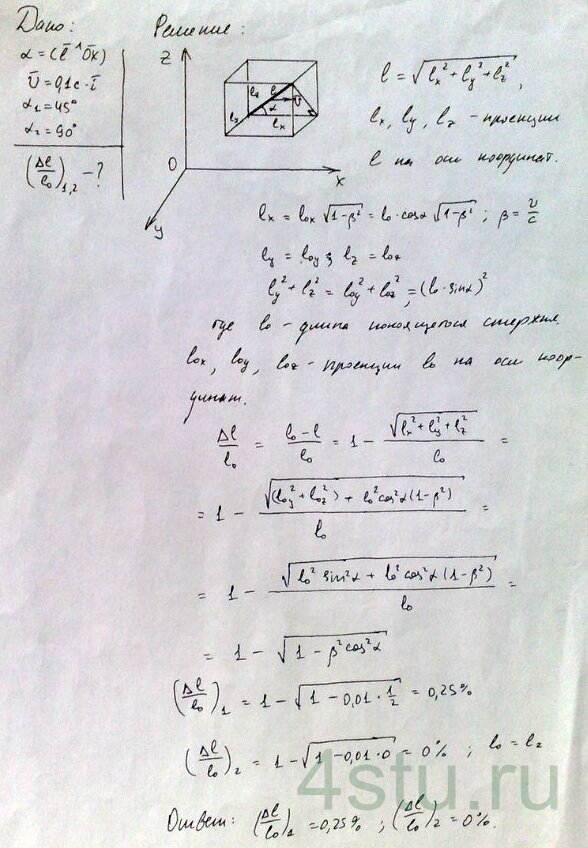 Дано:
Решение:
α = (l̄ ^ Ōx)
Ū = 0,1c · ī
α₁ = 45°
α₂ = 90°
(Δl/l₀)₁,₂ - ?
z
0
x
y
lz
l
Ū
α
ly
lx
l = √(lx² + ly² + lz²),
lx, ly, lz - проекции
l на оси координат.
lx = l₀x √(1-β²) = l₀ · cosα √(1-β²) ; β = υ/c
ly = l₀y ; lz = l₀z
ly² + lz² = l₀y² + l₀z² = (l₀ · sinα)²
где l₀ - длина покоящегося стержня.
l₀x, l₀y, l₀z - проекции l₀ на оси коор-
динат.
Δl/l₀ = (l₀ - l)/l₀ = 1 - √(lx² + ly² + lz²)/l₀ =
= 1 - √((l₀y² + l₀z²) + l₀² cos²α (1-β²))/l₀ =
= 1 - √(l₀² sin²α + l₀² cos²α (1-β²))/l₀ =
= 1 - √(1 - β² cos²α)
(Δl/l₀)₁ = 1 - √(1 - 0,01 · 1/2) = 0,25%
(Δl/l₀)₂ = 1 - √(1 - 0,01 · 0) = 0% ; l₀ = l₂
4stu.ru
Ответ: (Δl/l₀)₁ = 0,25% ; (Δl/l₀)₂ = 0%.